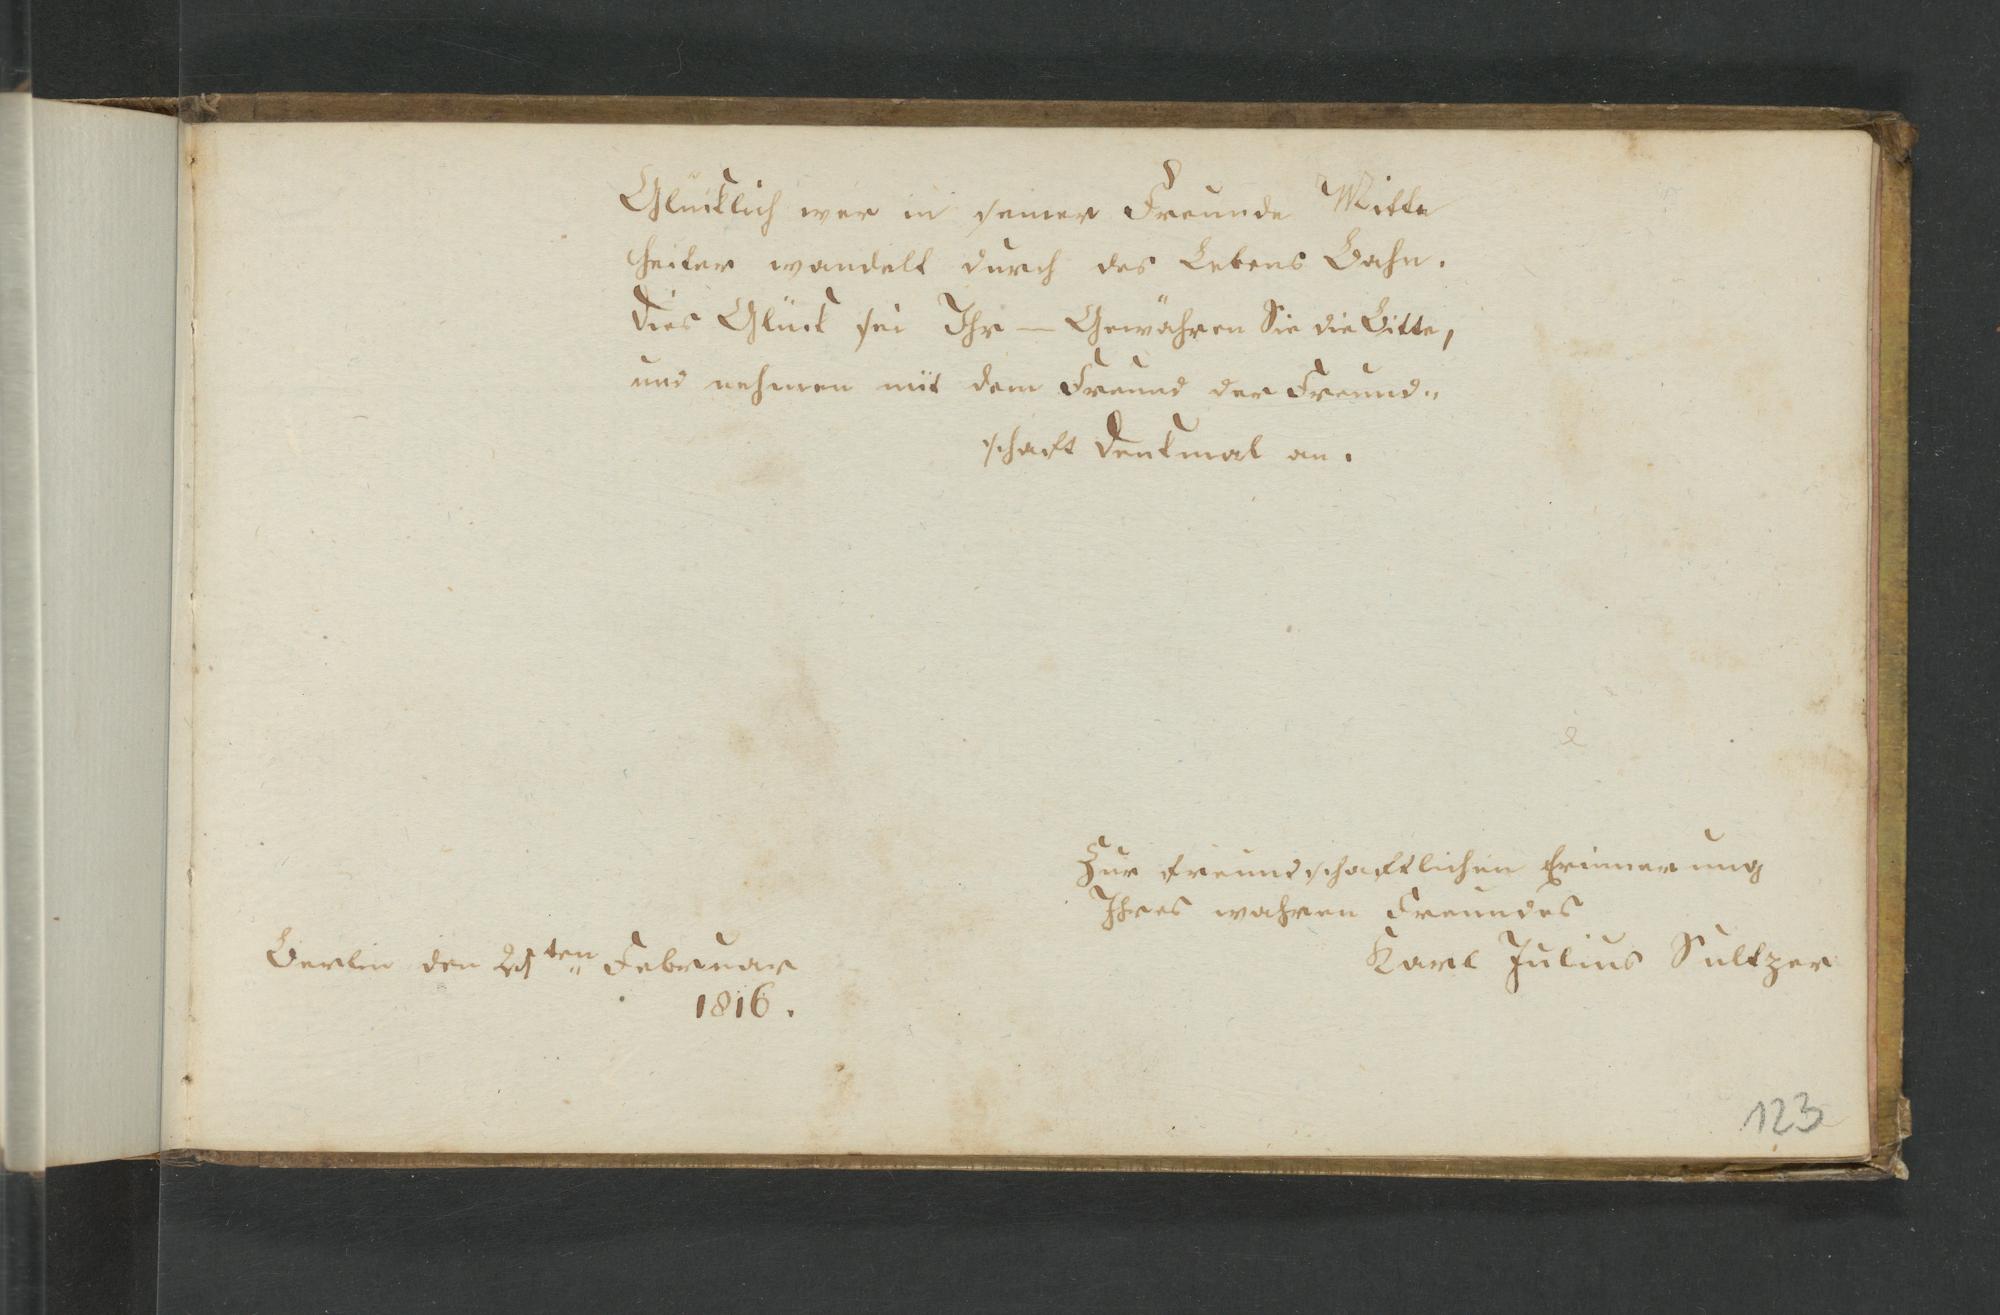 Glücklich wer in seiner Freunde Mitte
heiter wandelt durch des Lebens Bahn.
Dies Glück sei Ihr — Gewähren Sie die Bitte,
und nehmen mit dem Freund der Freund„
schaft Denkmal an.
Zur freundschaftlichen Erinnerung
Ihres wahren Freundes
Karl Julius Sultzer
Berlin den ten Februar
1816.
123